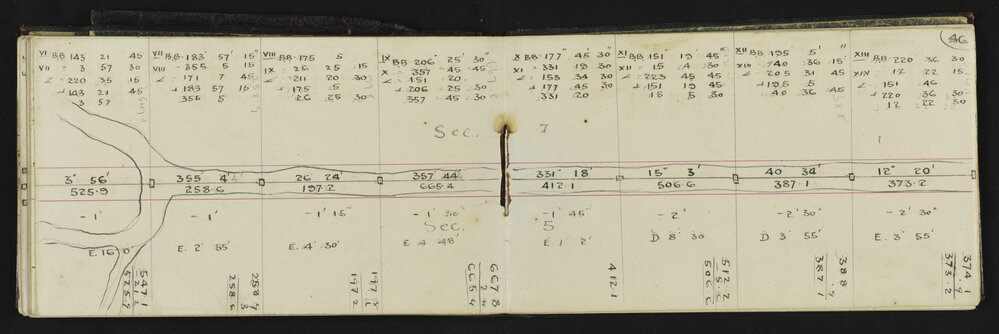 46
VI BB 143 21 45
VII = 3 57 30
∠ = 220 35 15
+ 143 21 45
3 57
VII BB 183° 57' 15"
= 355 5 15
∠ = 171 7 45
+ 183 57 15
355 5
VIII BB 175 5
IX = 26 25 15
∠ = 211 20 30
+ 175 5
26 25 30
IX BB 206° 25' 30"
X 357 45 45
∠ = 151 20
+ 206 25 30
357 45 30
X BB 177° 45' 30"
XI = 331 19 30
∠ = 153 34 30
+ 177 45 30
331 20
XI BB 151 19' 45"
XII = 15 4 30
∠ = 223 45 45
+ 151 19 45
15 5 30
XII BB 195° 5' "
XIII 40 36 15
∠ = 205 31 45
+ 195 5
40 36 45
XIII BB 220 36 30
XIX = 12 22 15
∠ = 151 46
+ 220 36 30
12 22 30
Sec. 7
3° 56' 355 4' 26 24' 357 44' 331 18' 15° 3' 40 34' 12° 20'
525.9 258.6 197.2 665.4 412.1 506.6 387.1 373.2
-1' -1' -1' 15" -1' 30" -1' 45" -2' -2' 30" -2' 30"
Sec. 5
E. 16° 0' E. 2° 55' E. 4° 30' E. 4° 48' E. 1° 2' D 8° 30 D. 3° 55' E. 3° 55'
547.1
525.9
258.9
.3
258.6
197.2
667.8
2.4
665.4
412.1
512.2
5.6
506.6
388
.9
387.1
374.1
.9
373.2